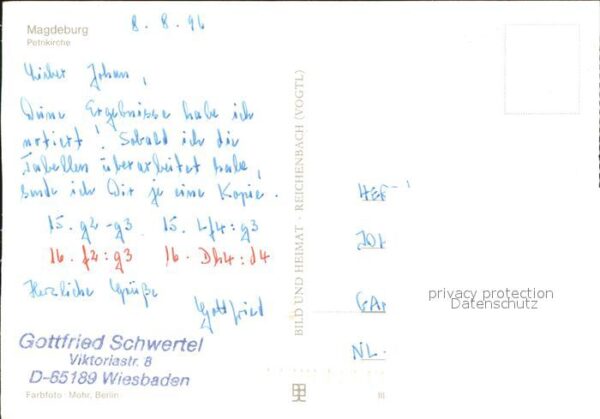 Magdeburg
Petrikirche
8.8.96
Lieber Johan,
Deine Ergebnisse habe ich
notiert! Sobald ich die
Tabellen überarbeitet habe,
sende ich Dir je eine Kopie.
15. g2-g3 15. Lf4:g3
16. f2:g3 16. Dh4:d4
Herzliche Grüße
Gottfried
Gottfried Schwertel
Viktoriastr. 8
D-65189 Wiesbaden
Farbfoto: Mohr, Berlin
BILD UND HEIMAT · REICHENBACH (VOGTL)
NL-
privacy protection
Datenschutz